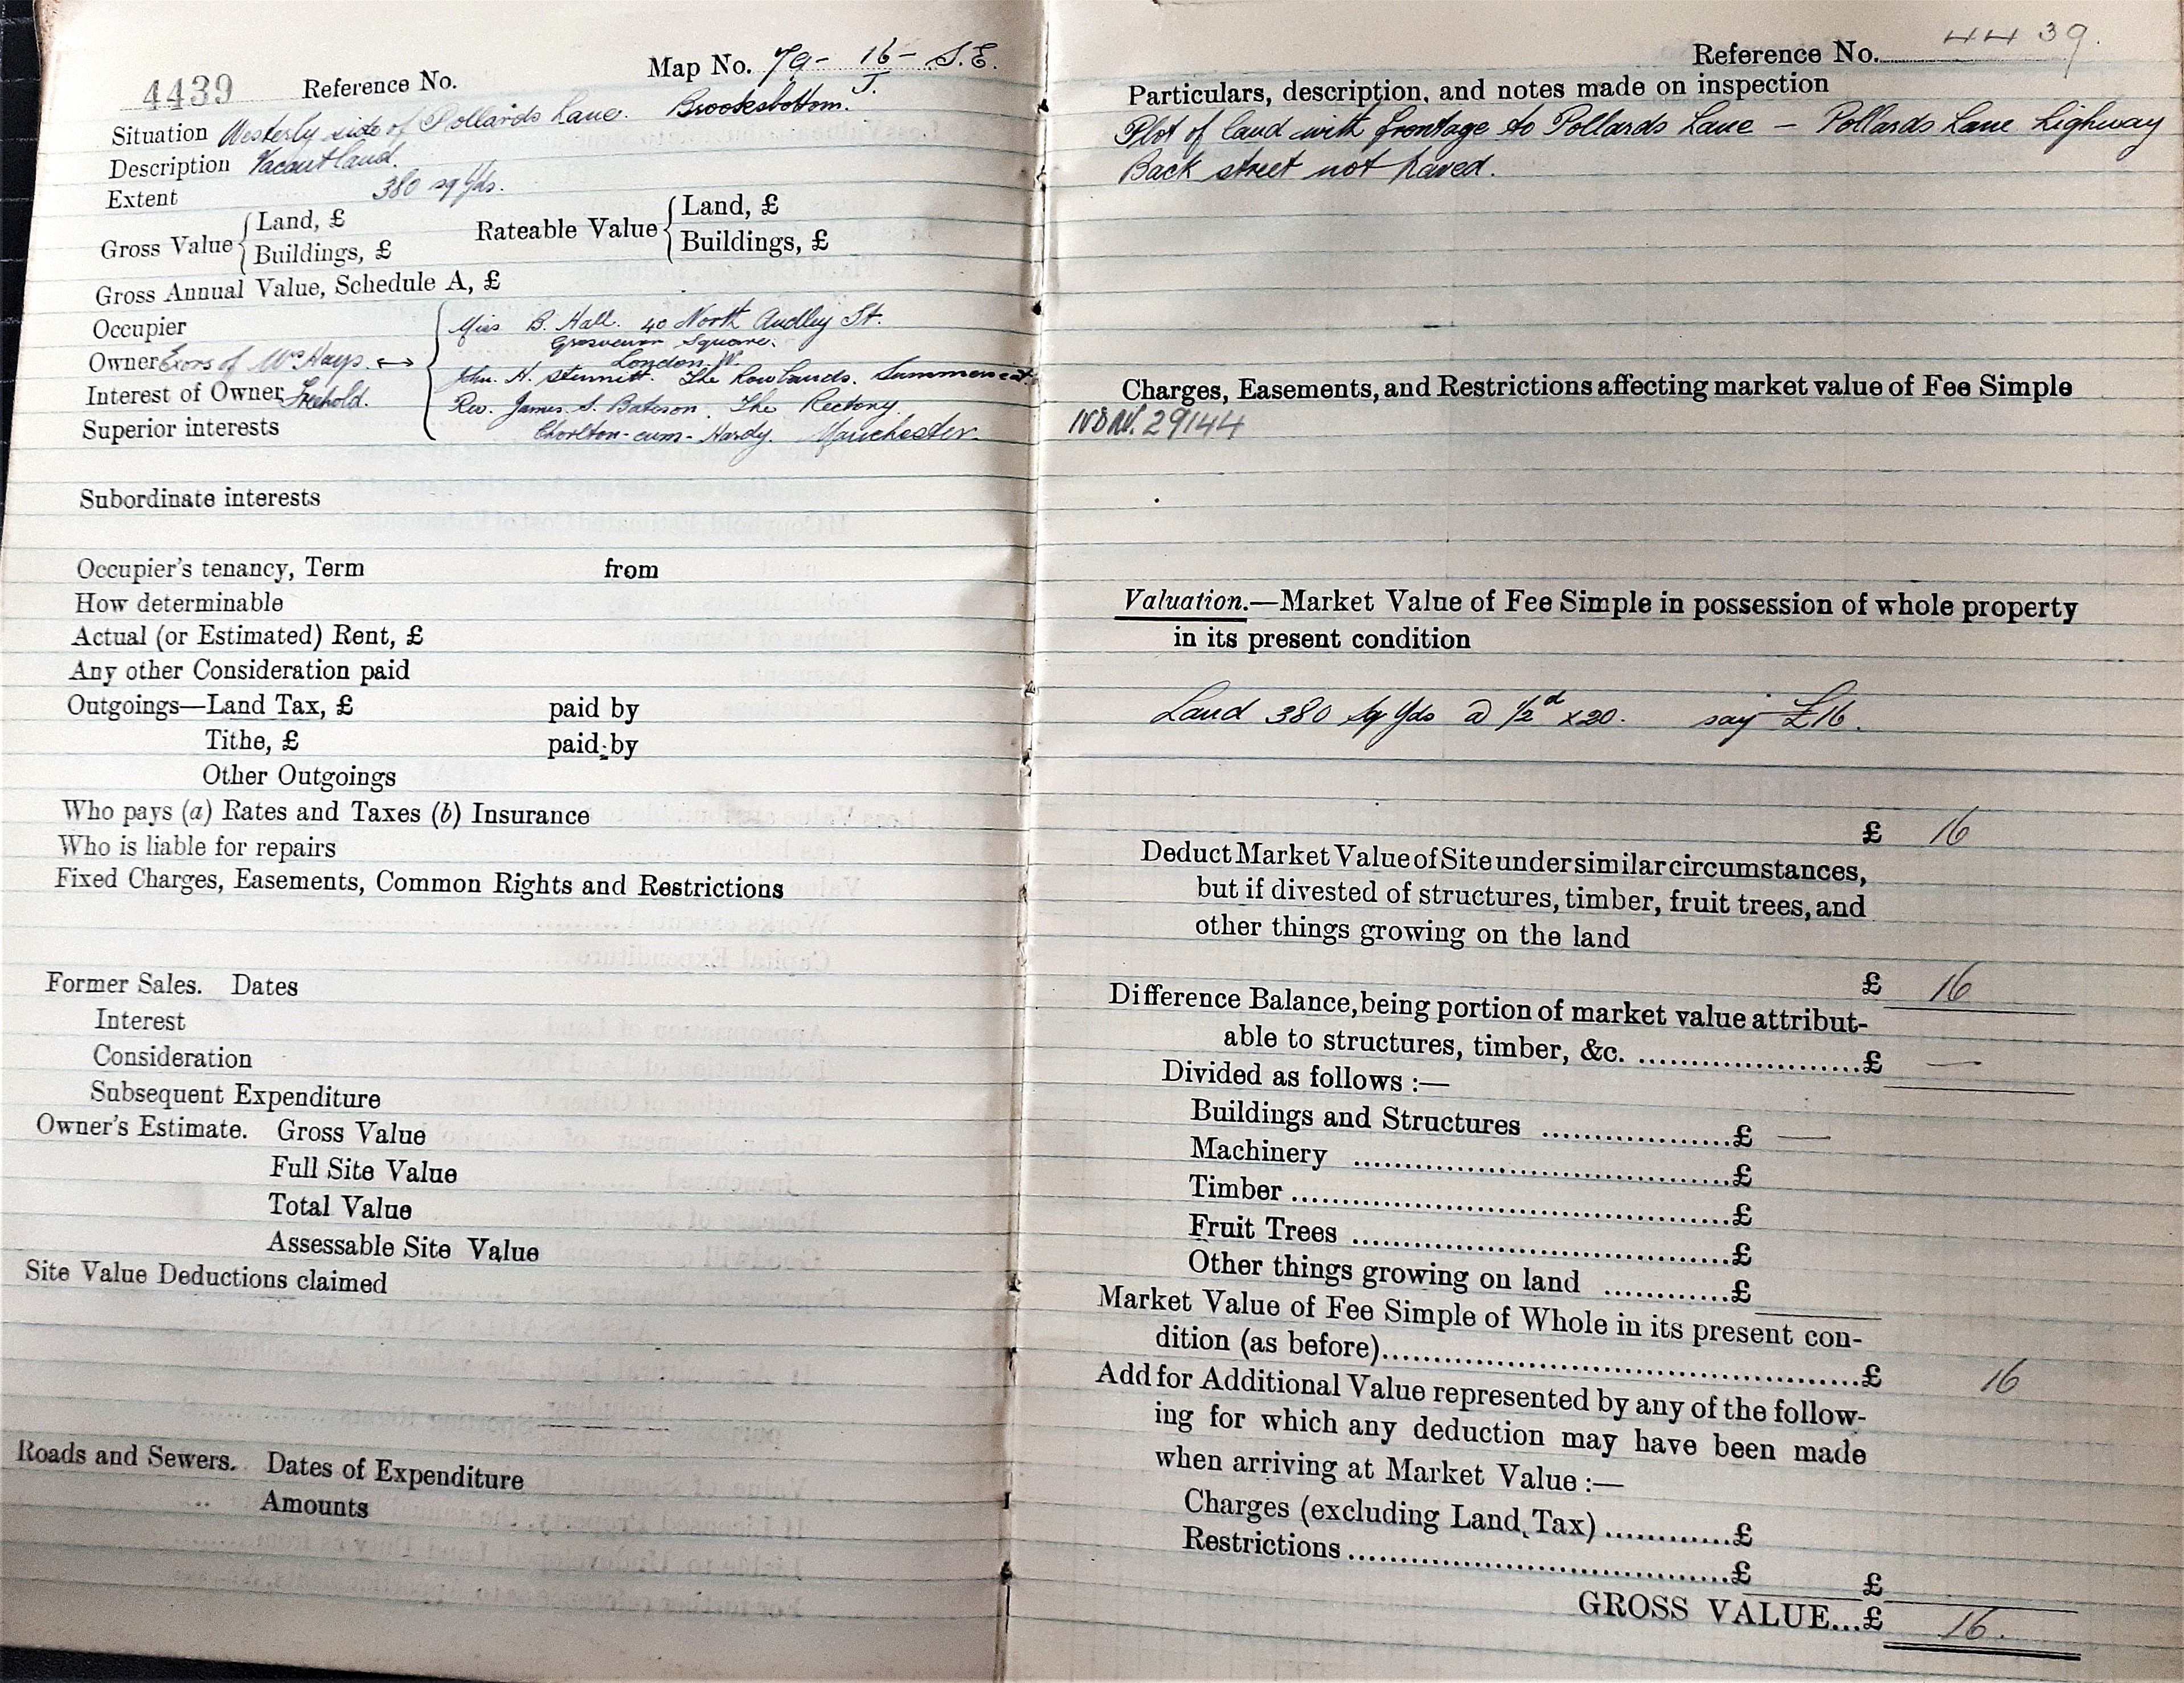 4439 Reference No. Map No. 79- 16- S.E.
J.
Situation Westerly side of Pollards Lane. Brooksbottom.
Description Vacant land.
Extent 380 sq Yds.
Gross Value { Land, £ Rateable Value { Land, £
Buildings, £ Buildings, £
Gross Annual Value, Schedule A, £
Occupier
Owner Exors of Wm Hays. ↔
Interest of Owner Freehold.
Superior interests
{ Miss B. Hall. 40 North Audley St.
Grosvenor Square.
London. W.
John. H. The Rowlands. Summerseat.
Rev. James. S. Bateson. The Rectory.
Chorlton-cum-Hardy. Manchester.
Subordinate interests
Occupier's tenancy, Term from
How determinable
Actual (or Estimated) Rent, £
Any other Consideration paid
Outgoings—Land Tax, £ paid by
Tithe, £ paid by
Other Outgoings
Who pays (a) Rates and Taxes (b) Insurance
Who is liable for repairs
Fixed Charges, Easements, Common Rights and Restrictions
Former Sales. Dates
Interest
Consideration
Subsequent Expenditure
Owner's Estimate. Gross Value
Full Site Value
Total Value
Assessable Site Value
Site Value Deductions claimed
Roads and Sewers. Dates of Expenditure
Amounts
Reference No. 4439.
Particulars, description, and notes made on inspection
Plot of land with frontage to Pollards Lane — Pollards Lane highway
Back street not paved.
Charges, Easements, and Restrictions affecting market value of Fee Simple
29144
Valuation.—Market Value of Fee Simple in possession of whole property
in its present condition
Land 380 Sq Yds @ 1/2d x20. say £16.
£ 16
Deduct Market Value of Site under similar circumstances,
but if divested of structures, timber, fruit trees, and
other things growing on the land
£ 16
Difference Balance, being portion of market value attribut-
able to structures, timber, &c. ....................£ —
Divided as follows :—
Buildings and Structures ..................£ —
Machinery ....................................£
Timber..........................................£
Fruit Trees ....................................£
Other things growing on land ............£
Market Value of Fee Simple of Whole in its present con-
dition (as before)..........................................£ 16
Add for Additional Value represented by any of the follow-
ing for which any deduction may have been made
when arriving at Market Value :—
Charges (excluding Land Tax) ............£
Restrictions ....................................£ £
GROSS VALUE...£ 16.